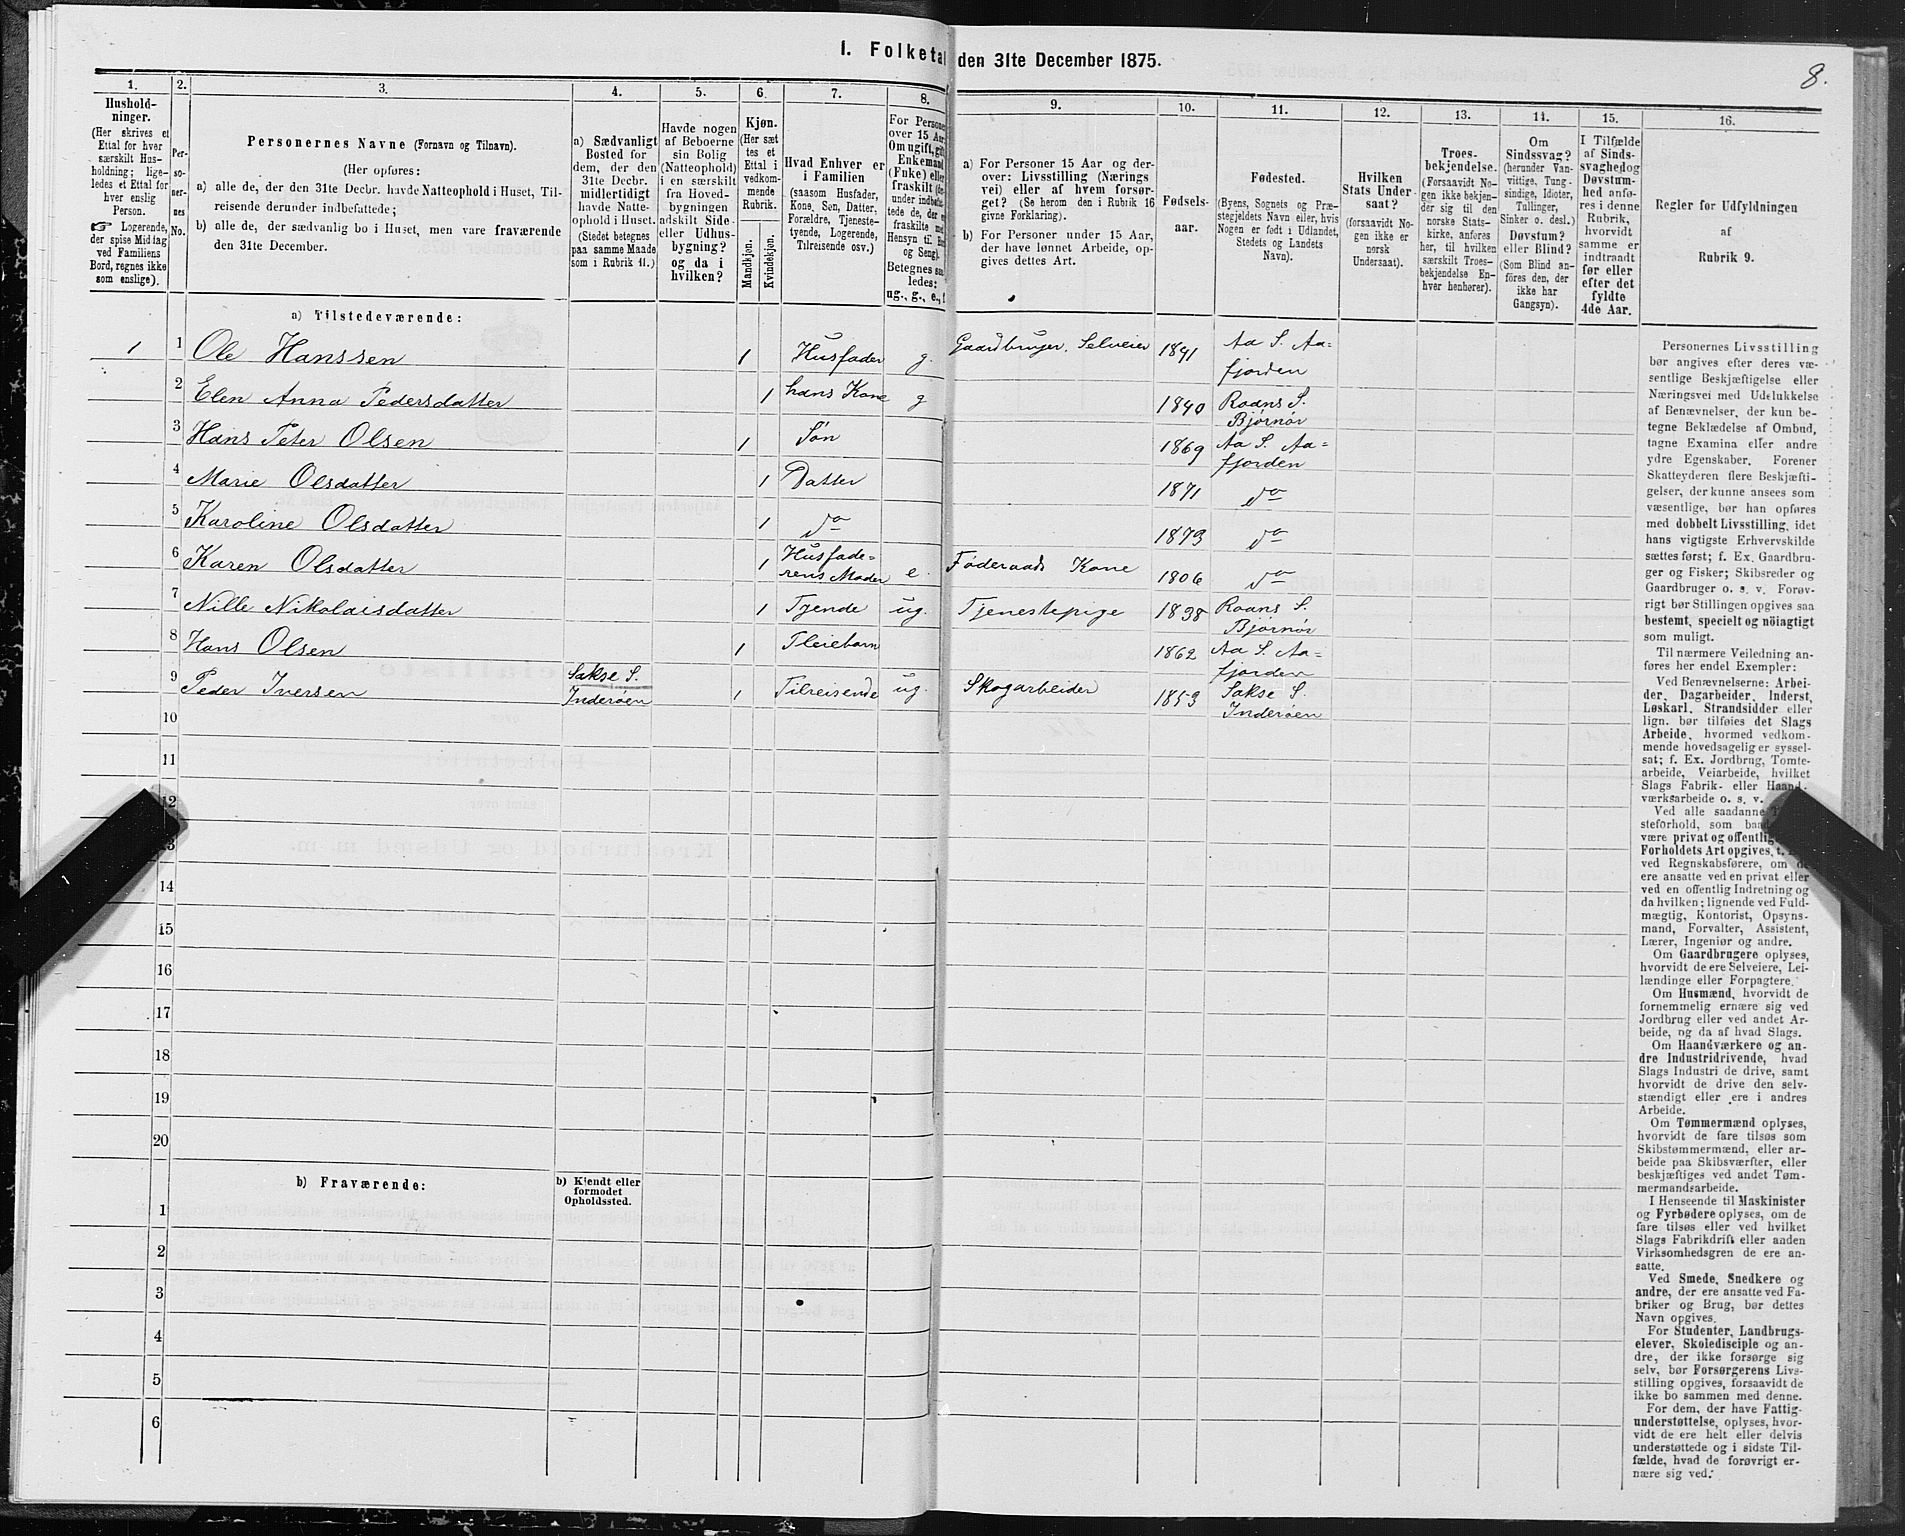 I. Folketal den 31te December 1875.
8.
1.
Hushold-
ninger.
(Her skrives et
Ettal for hver
særskilt Hus-
holdning; lige-
ledes et Ettal for
hver enslig
Person.
Logerende,
der spise Middag
ved Familiens
Bord, regnes ikke
som enslige).
2.
Per-
so-
ner-
nes
No.
3.
Personernes Navne (Fornavn og Tilnavn).
(Her opføres:
a) alle de, der den 31te Decbr. havde Natteophold i Huset, Til-
reisende derunder indbefattede;
b) alle de, der sædvanlig bo i Huset, men vare fraværende
den 31te December.
4.
a) Sædvanligt
Bosted for
dem, der den
31te Decbr.
midlertidigt
havde Natte-
ophold i Huset.
(Stedet betegnes
paa samme Maade
som i Rubrik 11.)
5.
Havde nogen
af Beboerne
sin Bolig
(Natteophold)
i en særskilt
fra Hoved-
bygningen
adskilt Side-
eller Udhus-
bygning?
og da i
hvilken?
6.
Kjøn.
(Her sæt
tes et
Ettal i
vedkom-
mende
Rubrik.
Mandkjøn.
Kvindekjøn.
7.
Hvad Enhver er
i Familien
(saasom Husfader,
Kone, Søn, Datter,
Forældre, Tjeneste-
tyende, Logerende,
Tilreisende osv.)
8.
For Personer
over 15 Aar:
Om ugift, gift,
Enkemand
(Fuke) eller
fraskilt
under indbefat-
tede de, der
fraskilte med
Hensyn til
og Seng).
Betegnes saa-
ledes:
ug., g., e., f.
9.
a) For Personer 15 Aar og der-
over: Livsstilling (Nærings
vei) eller af hvem forsør-
get? (Se herom den i Rubrik 16
givne Forklaring).
b) For Personer under 15 Aar,
der have lønnet Arbeide, op-
gives dettes Art.
10.
Fødsels-
aar.
11.
Fødested.
(Byens, Sognets og Præ-
stegjeldets Navn eller, hvis
Nogen er født i Udlandet,
Stedets og Landets
Navn).
12.
Hvilken
Stats Under-
saat?
(forsaavidt No-
gen ikke er
norsk
Undersaat).
13.
Troes-
bekjendelse.
(Forsaavidt No-
gen ikke bekjen-
der sig til den
norske Stats-
kirke, anføres
her, til hvilken
særskilt Troes-
bekjendelse En-
hver henhører).
14.
Om
Sindssvag?
(herunder Van-
vittige, Tung-
sindige, Idioter,
Tullinger,
Sinker o. desl.)
Døvstum?
eller Blind?
(Som Blind an-
føres den, der
ikke har
Gangsyn).
15.
I Tilfælde
af Sinds-
svaghed og
Døvstum-
hed anfø-
res i denne
Rubrik,
hvorvidt
samme er
indtraadt
før eller
efter det
fyldte
4de Aar.
16.
Regler for Udfyldningen
af
Rubrik 9.
a) Tilstedeværende:
1 1 Ole Hanssen 1 Husfader g. Gaardbruger, Selveier 1841 Aa S. Aa=
fjorden
2 Elen Anna Pedersdatter 1 hans Kone g 1840 Roans S.
Bjørnør
3 Hans Peter Olsen 1 Søn 1869 Aa S. Aa=
fjorden
4 Marie Olsdatter 1 Datter 1871 do
5 Karoline Olsdatter 1 do 1873 do
6 Karen Olsdatter 1 Husfade=
rens Moder e. Føderaads Kone 1806 do
7 Nille Nikolaisdatter 1 Tyende ug. Tjenestepige 1838 Roans S.
Bjørnør
8 Hans Olsen 1 Pleiebarn 1862 Aa S. Aa=
fjorden
9 Peder Iversen Sakse S.
Inderøen 1 Tilreisende ug. Skogarbeider 1853 Sakse S.
Inderøen
10
11
12
13
14
15
16
17
18
19
20
b) Fraværende:
b) Kjendt eller
formodet
Opholdssted.
1
2
3
4
5
6
Personernes Livsstilling
bør angives efter deres væ-
sentlige Beskjæftigelse eller
Næringsvei med Udelukkelse
af Benævnelser, der kun be-
tegne Beklædelse af Ombud,
tagne Examina eller andre
ydre Egenskaber. Forener
Skatteyderen flere Beskjæfti-
gelser, der kunne ansees som
væsentlige, bør han opføres
med dobbelt Livsstilling, idet
hans vigtigste Erhvervskilde
sættes først; f. Ex. Gaardbru-
ger og Fisker; Skibsreder og
Gaardbruger o. s. v. Forøv-
rigt bør Stillingen opgives saa
bestemt, specielt og nöiagtigt
som muligt.
Til nærmere Veiledning an-
føres her endel Exempler:
Ved Benævnelserne: Arbei-
der, Dagarbeider, Inderst,
Løskarl, Strandsidder eller
lign. bør tilføies det Slags
Arbeide, hvormed vedkom-
mende hovedsagelig er syssel-
sat; f. Ex. Jordbrug, Tomte-
arbeide, Veiarbeide, hvilket
Slags Fabrik- eller Haand-
værksarbeide o. s. v.
Ved alle saadanne
steforhold, som baade
være privat og offentlig
Forholdets Art opgives, t.
ved Regnskabsførere, om de
ere ansatte ved en privat eller
ved en offentlig Indretning og
da hvilken; lignende ved Fuld-
mægtig, Kontorist, Opsyns-
mand, Forvalter, Assistent,
Lærer, Ingeniør og andre.
Om Gaardbrugere oplyses,
hvorvidt de ere Selveiere, Lei-
lændinge eller Forpagtere.
Om Husmænd, hvorvidt de
fornemmelig ernære sig ved
Jordbrug eller ved andet Ar-
beide, og da af hvad Slags.
Om Haandværkere og an-
dre Industridrivende, hvad
Slags Industri de drive, samt
hvorvidt de drive den selv-
stændigt eller ere i andres
Arbeide.
Om Tømmermænd oplyses,
hvorvidt de fare tilsøs som
Skibstømmermænd, eller ar-
beide paa Skibsværfter, eller
beskjæftiges ved andet Tøm-
mermandsarbeide.
I Henseende til Maskinister
og Fyrbødere oplyses, om de
fare tilsøs eller ved hvilket
Slags Fabrikdrift eller anden
Virksomhedsgren de ere an-
satte.
Ved Smede, Snedkere og
andre, der ere ansatte ved Fa-
briker og Brug, bør dettes
Navn opgives.
For Studenter, Landbrugs-
elever, Skoledisciple og an-
dre, der ikke forsørge sig
selv, bør Forsørgerens Livs-
stilling opgives, forsaavidt de
ikke bo sammen med denne.
For dem, der have Fattig-
understøttelse, oplyses, hvor-
vidt de ere helt eller delvis
understøttede og i sidste Til-
fælde, hvad de forøvrigt er-
nære sig ved.